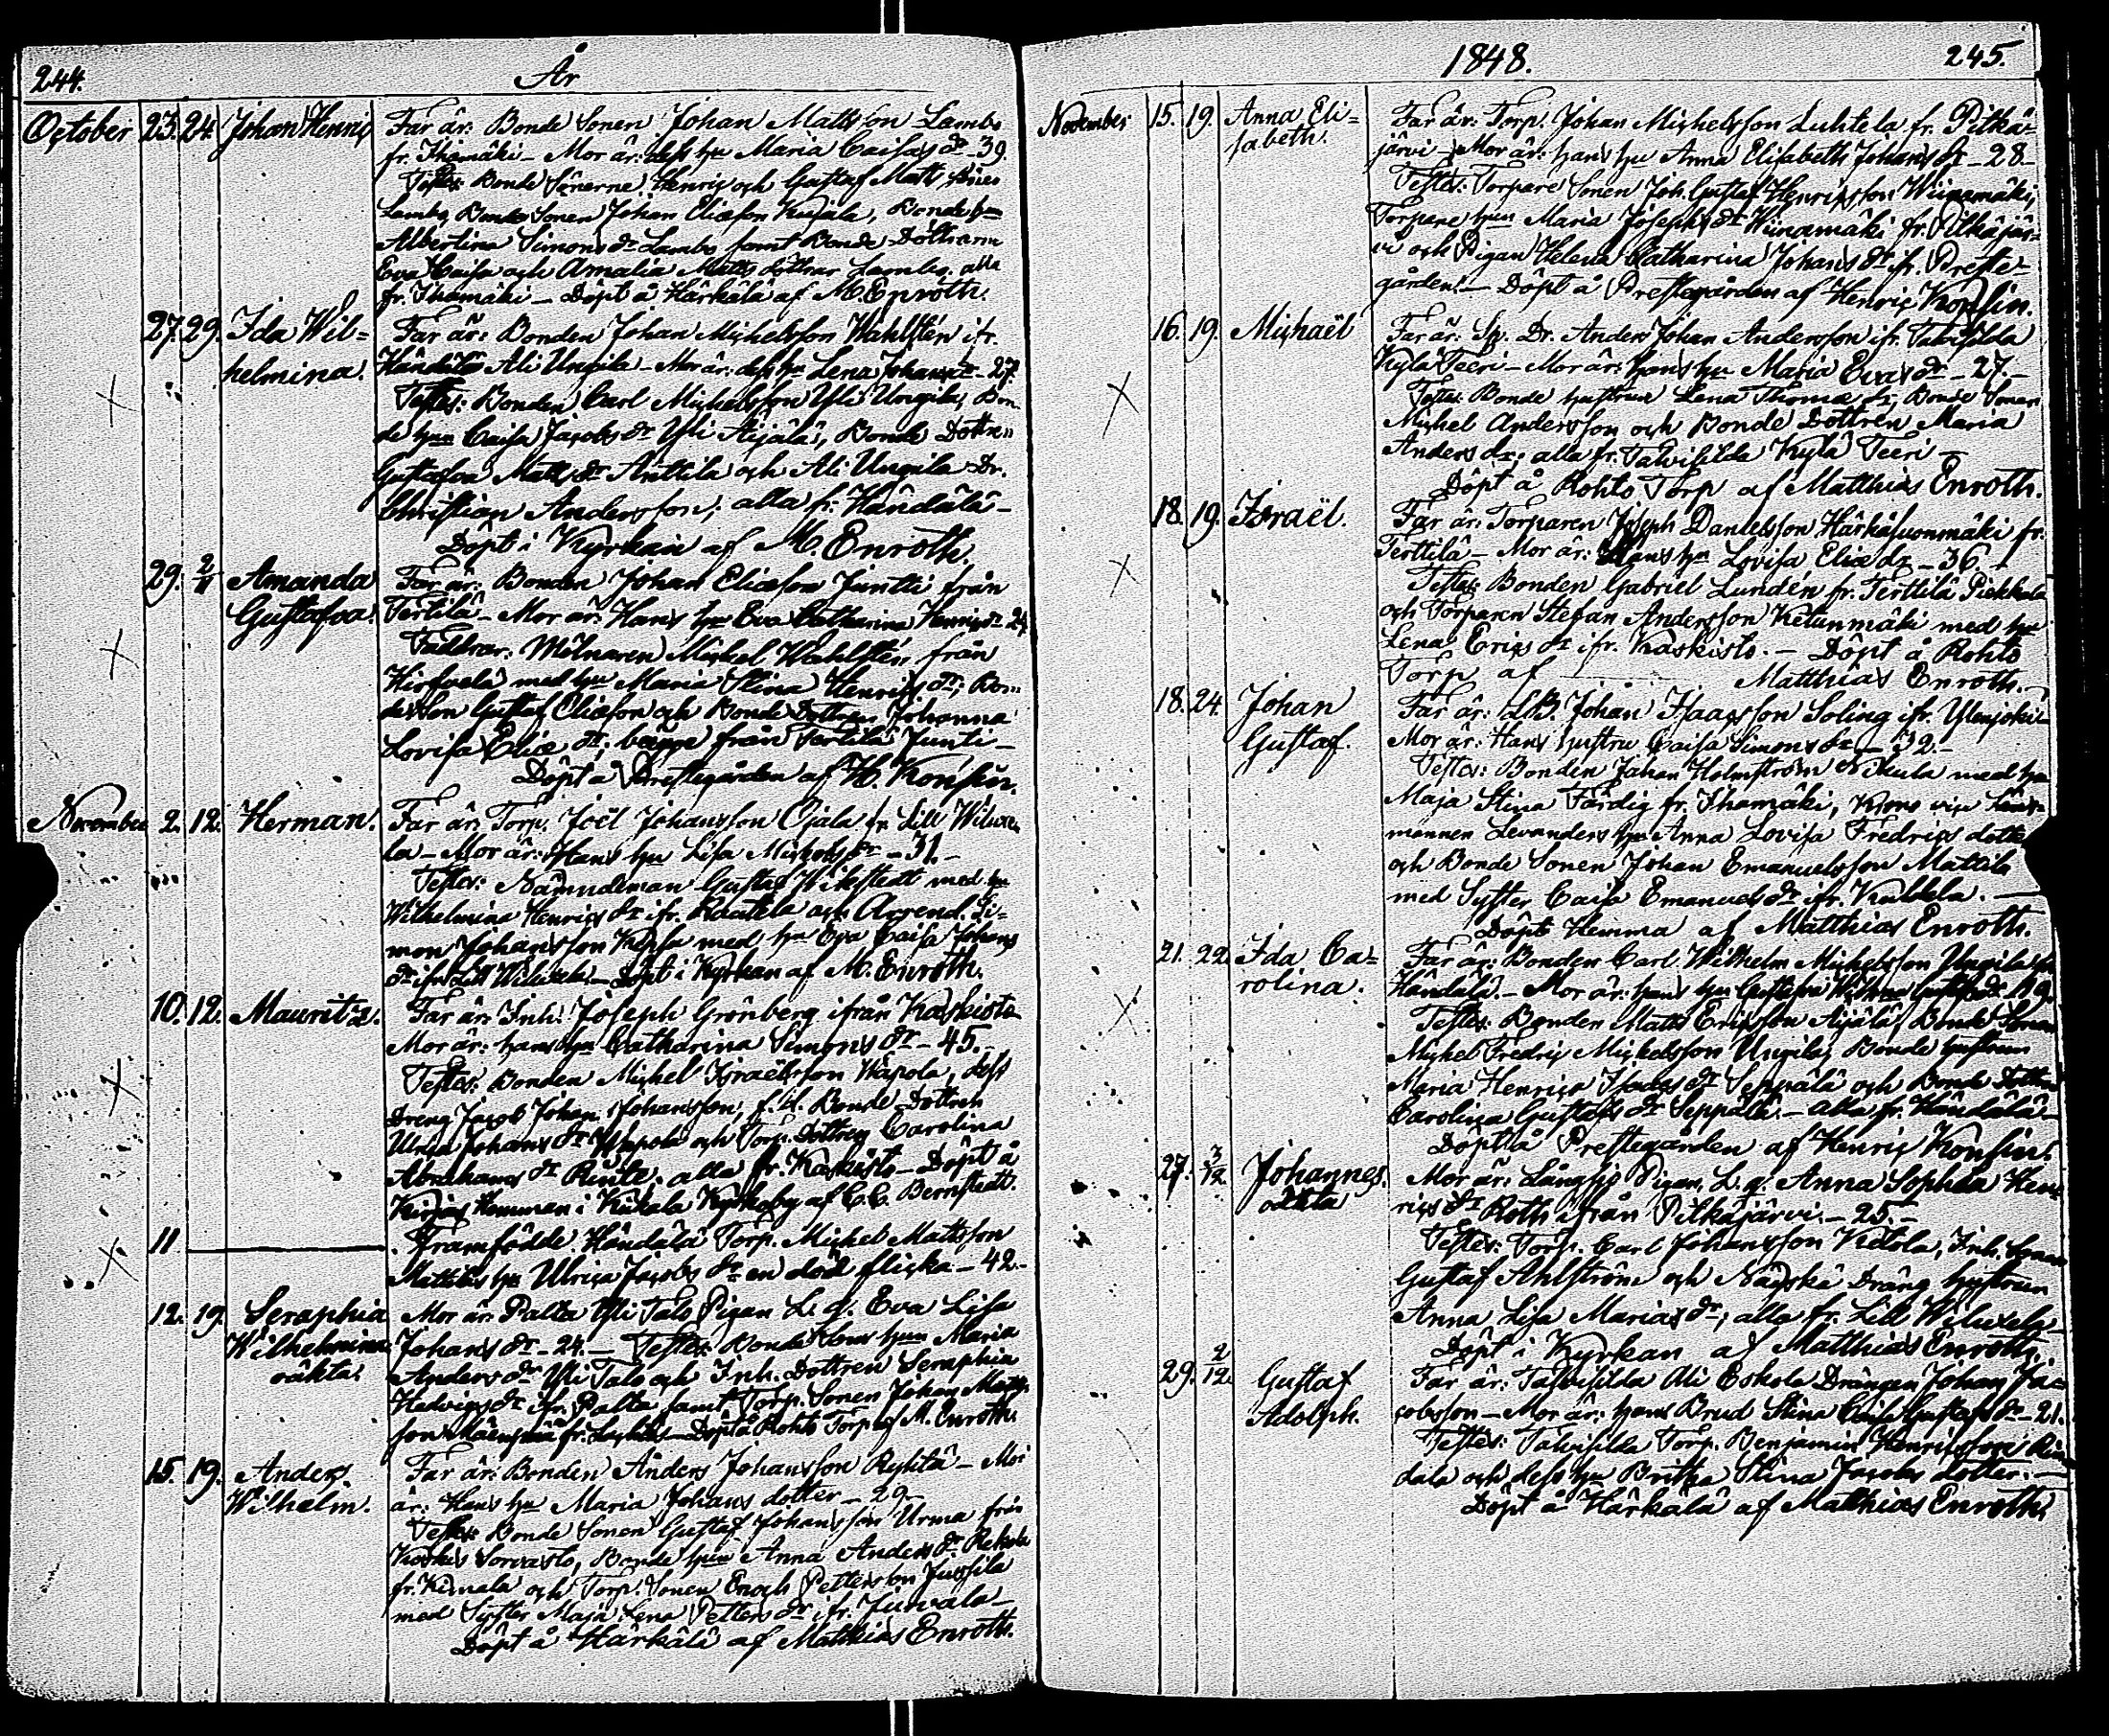 244. År
October 23. 24. Johan Henric Far är: Bonde Sonen Johan Mattsson Lambo
fr. Ihamäki – Mor är: dess hu Maria Caisa 39.
Testes: Bonde Sönerne Henric och Gustaf Matts söner
Lambo, Bonde Sonen Johan Eliæson Kujala, Bonde hu
Albertina Simons dr Lambo samt Bonde Döttrarne
Eva Caisa och Amalia Matts döttrar Lambo, alla
fr. Ihamäki – Döpt å Härkälä af M. Enroth.
27. 29. Ida Wil= Far är: Bonden Johan Michelsson Wahlstén ifr.
helmina. Händälä Ali Ungila – Mor är: dess hu Lena Johans dr – 27.
Testes: Bonden Carl Michelsson Yli Ungila, Bon-
de hun Caisa Jacobs dr Yli Äijälä, Bonde Dottr=
Gustafva Matts dr Anttila och Ali Ungila Dr.
Christian Andersson; alla fr. Händälä –
Döpt i Kyrkan af M. Enroth.
29. 2/11 Amanda Far är: Bonden Johan Eliæson Juntti från
Gustafva. Terttilä – Mor är: Hans hu Eva Catharina Henrics dr – 24
Faddrar: Mölnaren Michel Wahlstén från
Hirsvelä med hu Maria Stina Henrics dr; Bon=
de Son Gustaf Eliæson och Bonde Dottren Johanna
Lovisa Eliæ dr. begge från Terttilä Juntti –
Döpt å Prestegården af H. Konsin.
November 2. 12. Herman. Far är: Torp. Joël Johansson Ojala fr. Lill Wiluxe
la – Mor är: Hans hu Lisa Michels dr – 31. –
Testes: Nämndeman Gustaf Wikstedt med hu
Wilhelmina Henrics dr ifr. Rautela och Arrend. Si=
mon Johansson Kepsa med hu Eva Caisa Johans
dr ifr. Lill Wiluxela. – Döpt i Kyrkan af M. Enroth.
10. 12. Mauritz. Far är: Inh. Joseph Grönberg ifrån Kaskisto
Mor är: hans hu Catharina Simons dr – 45. –
Testes: Bonden Michel Israëlsson Wapola, dess
Dreng Jacob Johan Johansson, f. d. Bonde Dottren
Ulrica Johans dr Wapola och Torp. Dottren Carolina
Abrahams dr Riute, alla fr. Kaskisto – Döpt å
Hemman i Kiikala Kyrkoby af C. C. Bernstedt.
11 Framfödde Händälä Torp. Michel Mattsson
Mattilas hu Ulrica Jacobs dr en död flicka – 42 –
12. 19. Seraphia Mor är: Palta Yli Talo Pigan L. q. Eva Lisa
Wilhelmina Johans dr – 24. – Testes: Bonde Sons hun Maria
oäkta. Anders dr Yli Talo och Inh. Dottren Seraphia
Hedvigs dr ifr. Palta samt Torp. Sonen Johan Matts
son fr. – Döpt å Rohto Torp af M. Enroth.
15. 19. Anders Far är: Bonden Anders Johansson Ryhtä – Mor
Wilhelm. är: Hans hu Maria Johans dotter – 29 –
Testes: Bonde Sonen Gustaf Johansson Urma från
Koskis Sorvasto, Bonde hun Anna Anders dr Rekola
fr. Kimala och Torp. Sonen Enoch Pettersson Jussila
med Syster Maja Lena Petters dr ifr. Juvala –
Döpt å Härkälä af Matthias Enroth.
1848. 245.
November 15. 19. Anna Eli= Far är: Torp. Johan Michelsson Luhtela fr. Pitkä=
sabeth. järvi – Mor är: hans hu Anna Elisabeth Johans dr – 28 –
Testes: Torpare Sonen Joh. Gustaf Henricsson Wiinamäki,
Torpare hun Maria Josephs dr Wiinamäki fr. Pitkäjär=
vi och Pigan Helena Catharina Johans dr ifr. Preste=
gården. – Döpt å Prestegården af Henric Konsin.
16. 19. Michaël Far är: Sp. Dr. Anders Johan Andersson ifr. Talvisilda
Kylä Teeri – Mor är: hans hu Maria Evas dr – 27. –
Testes: Bonde hustrun Lena Thomæ dr, Bonde Sonen
Michel Andersson och Bonde Dottren Maria
Anders dr; alla fr. Talvisilda Kylä Teeri –
Döpt å Rohto Torp af Matthias Enroth.
18. 19. Israël. Far är: Torparen Joseph Danielsson Härkäsuonmäki fr.
Terttilä – Mor är: Hans hu Lovisa Eliæ dr – 36. –
Testes: Bonden Gabriel Lundén fr. Terttilä Piekkala
och Torparen Stefan Andersson Ketunmäki med hu
Lena Erics dr ifr. Kaskisto. – Döpt å Rohto
Torp af Matthias Enroth. –
18. 24. Johan Far är: LB. Johan Isaacsson Soling ifr. Ylenjoki –
Gustaf. Mor är: Hans hustru Caisa Simons dr – 32. –
Testes: Bonden Johan Holmström Nikula med hu
Maja Stina Färdig fr. Ihamäki, Krono vice Läns=
mannen Levanders hu Anna Lovisa Fredrics dotter
och Bonde Sonen Johan Emanuelsson Mattila
med Syster Caisa Emanuels dr ifr. Kulkkla. –
Döpt Hemma af Matthias Enroth.
21. 22. Ida Ca= Far är: Bonden Carl Wilhelm Michelsson Ungila fr.
rolina. Händälä. – Mor är: hans hu Gustafva 19.
Testes: Bonden Matts Ericsson Äijälä, Bonde Sonen
Michel Fredric Michelsson Ungila, Bonde hustrun
Maria Henrica Isaacs dr Seppälä och Bonde Dottren
Carolina Gustafs dr Seppälä. – alla fr. Händälä –
Döpt å Prestegården af Henric Konsin.
27. 3/12 Johannes. Mor är: Långsjö Pigan, L. q. Anna Sophia Hen=
oäkta rics dr Roth ifrån Pitkäjärvi. – 25. –
Testes: Torp. Carl Johansson Ketola, Inh. Sonen
Gustaf Ahlström och Näyskä Dräng hustrun
Anna Lisa Marias dr; alla fr. Lill Wiluxela
Döpt i Kyrkan af Matthias Enroth.
29. 2/12. Gustaf Far är: Talvisilda Ali Eskola Drängen Johan Ja=
Adolph. cobsson – Mor är: hans Brud Stina Caisa Gustafs dr – 21.
Testes: Talvisilda Torp. Benjamin Henricsson
dala och dess hu Britha Stina Jacobs dotter. –
Döpt å Härkälä af Matthias Enroth.